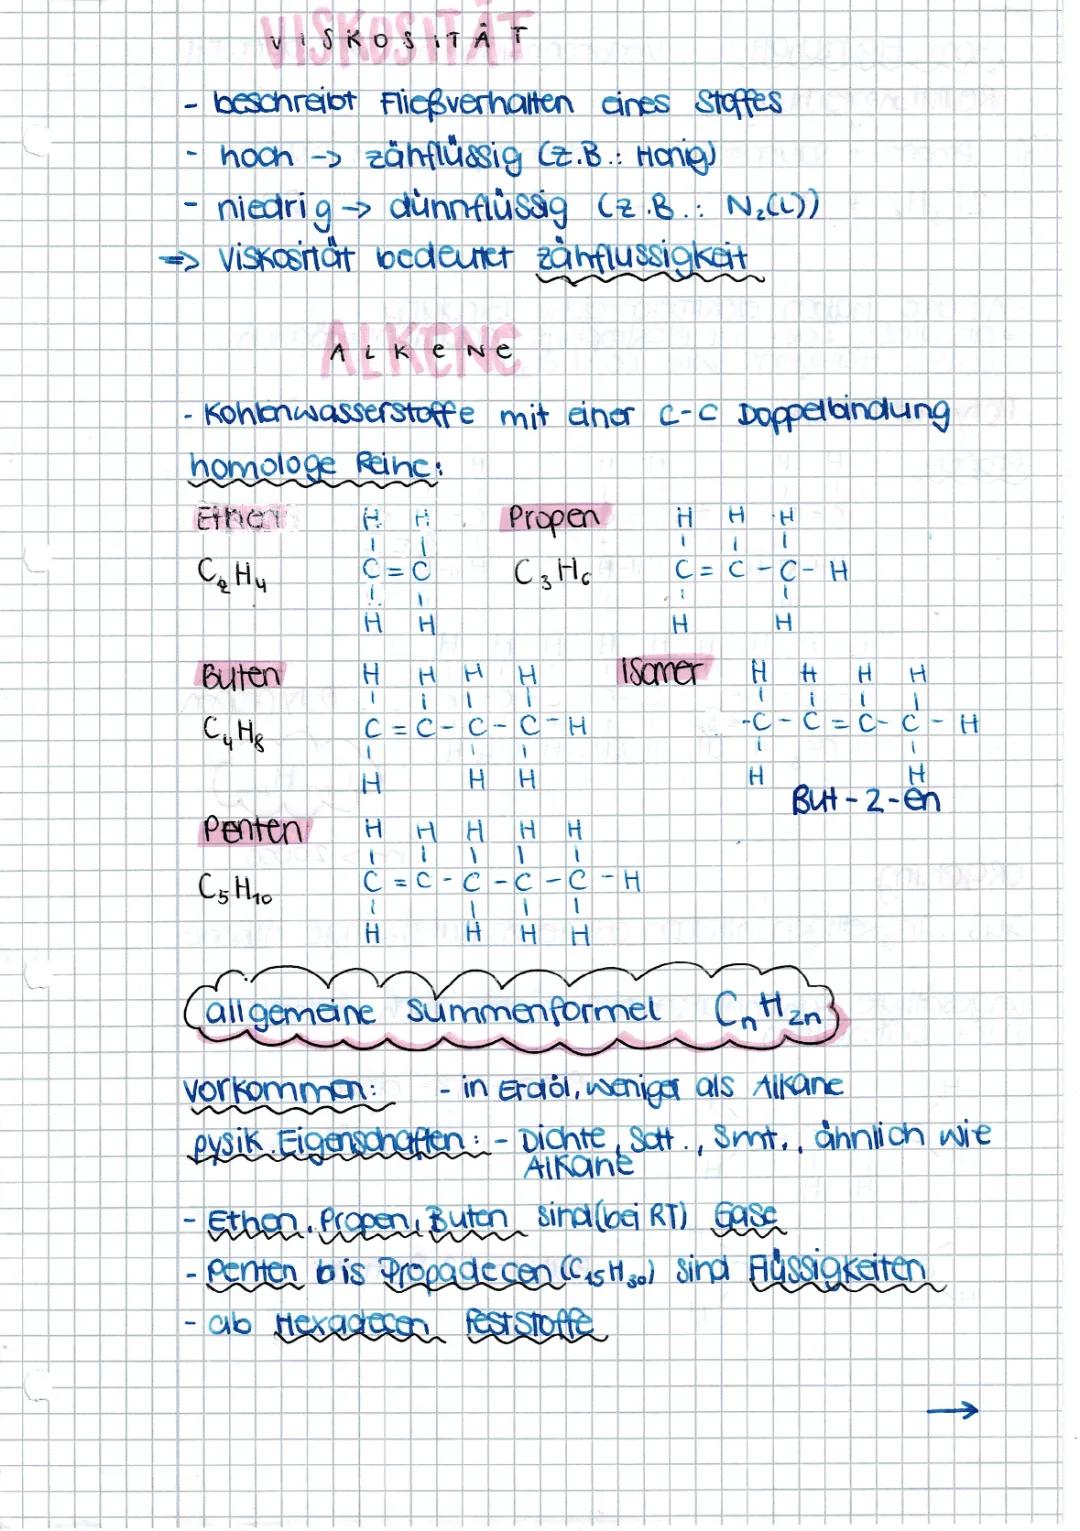 VISKOSITÄT
- beschreibt Fließverhalten eines Stoffes
- hoch -> zähflüssig (z.B.: Honig)
- niedrig -> dünnflüssig (z.B.: N₂(L))
=> Viskosität bedeutet zähflussigkeit
ALKENE
- Kohlenwasserstoffe mit einer C-C Doppelbindung
homologe Reihe:
Ethen H H Propen H H H
C₂H₄ C = C C₃H₆ C = C - C - H
H H H H
Buten H H H H Isomer H H H H
C₄H₈ C = C - C - C - H -C - C = C - C - H
H H H H H
But-2-en
Penten H H H H H
C₅H₁₀ C = C - C - C - C - H
H H H H
allgemeine Summenformel CₙH₂ₙ
Vorkommen: - in Erdöl, weniger als Alkane
pysik. Eigenschaften: - Dichte, Sdtt., Smt., ähnlich wie
Alkane
- Ethen, Propen, Buten sind (bei RT) Gase
- Penten bis Propadecen (C₁₅H₃₀) sind Flüssigkeiten
- ab Hexadecen Feststoffe
→